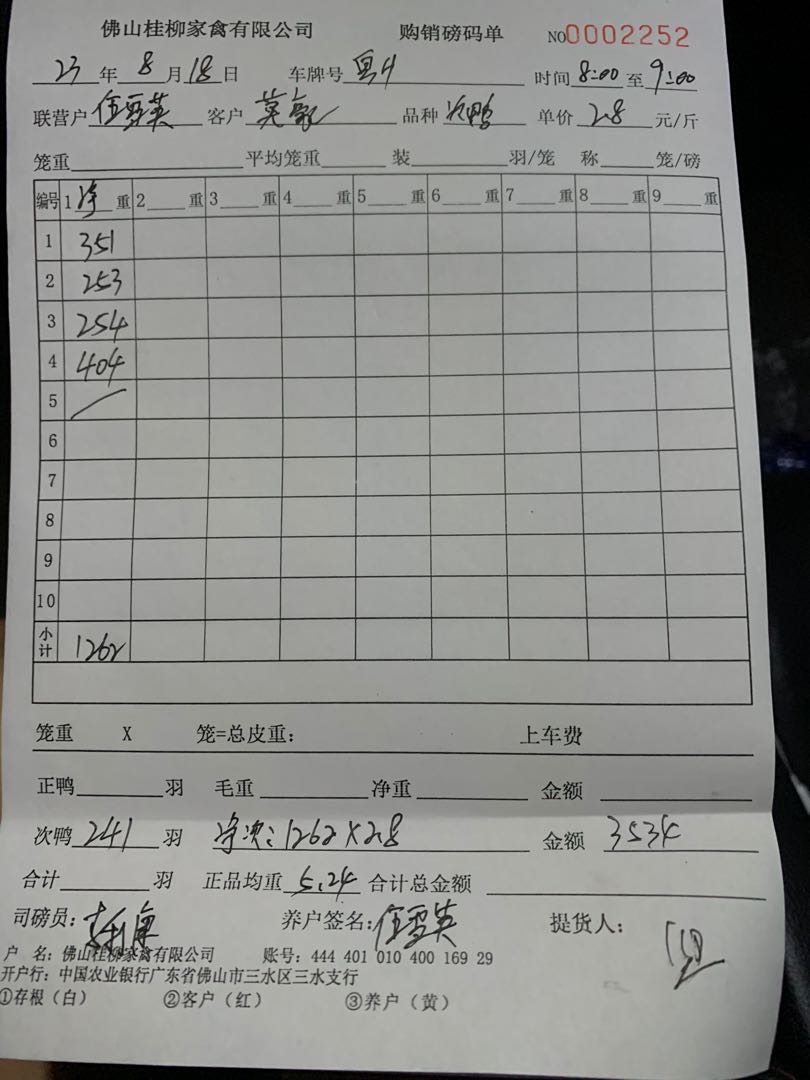 佛山桂柳家禽有限公司 购销磅码单 NO0002252
23年8月18日 车牌号 粤H 时间8:00至9:00
联营户 伍雪英 客户 莫 品种 次鸭 单价 2.8 元/斤
笼重 平均笼重 装 羽/笼 称 笼/磅
编号 1净重 2重 3重 4重 5重 6重 7重 8重 9重
1 351
2 253
3 254
4 404
5 /
6
7
8
9
10
小计 1262
笼重 X 笼=总皮重: 上车费
正鸭 羽 毛重 净重 金额
次鸭241羽 净次:1262×2.8 金额 3534
合计 羽 正品均重5.24 合计总金额
司磅员: 养户签名:伍雪英 提货人:
户 名:佛山桂柳家禽有限公司 账号:444 401 010 400 169 29
开户行:中国农业银行广东省佛山市三水区三水支行
①存根(白) ②客户(红) ③养户(黄)